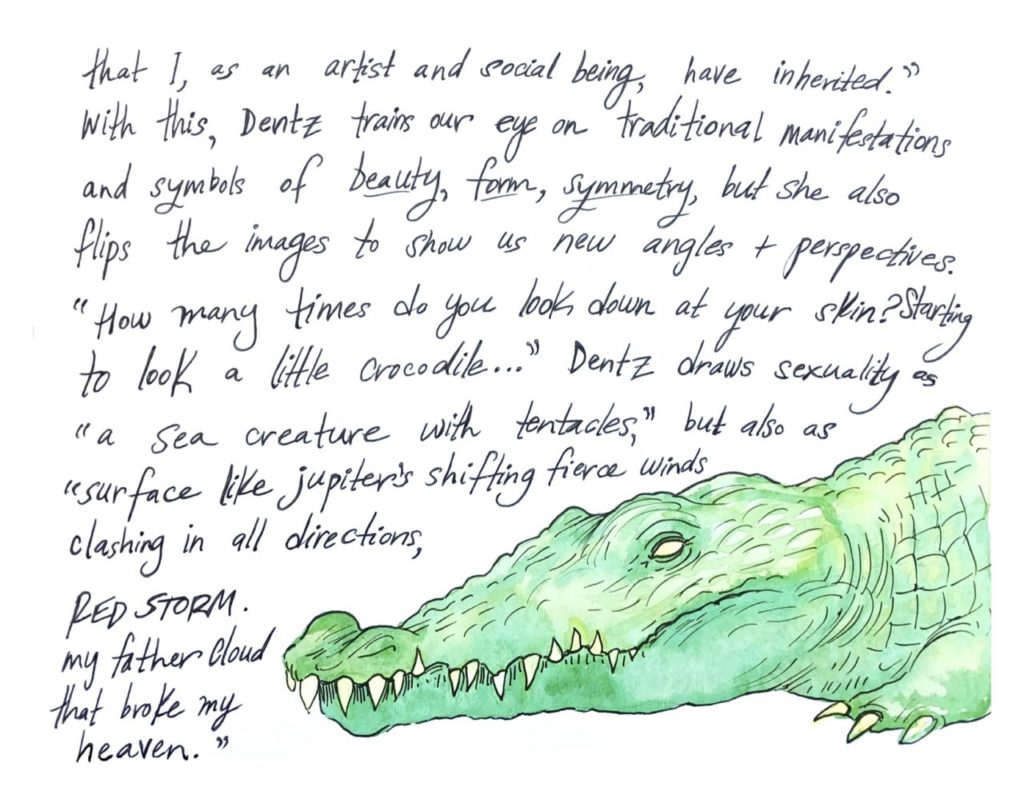 that I, as an artist and social being, have inherited."
With this, Dentz trains our eye on traditional manifestations
and symbols of beauty, form, symmetry, but she also
flips the images to show us new angles + perspectives.
"How many times do you look down at your skin? Starting
to look a little crocodile..." Dentz draws sexuality as
"a sea creature with tentacles," but also as
"surface like jupiter's shifting fierce winds
clashing in all directions,
RED STORM.
my father Cloud
that broke my
heaven."